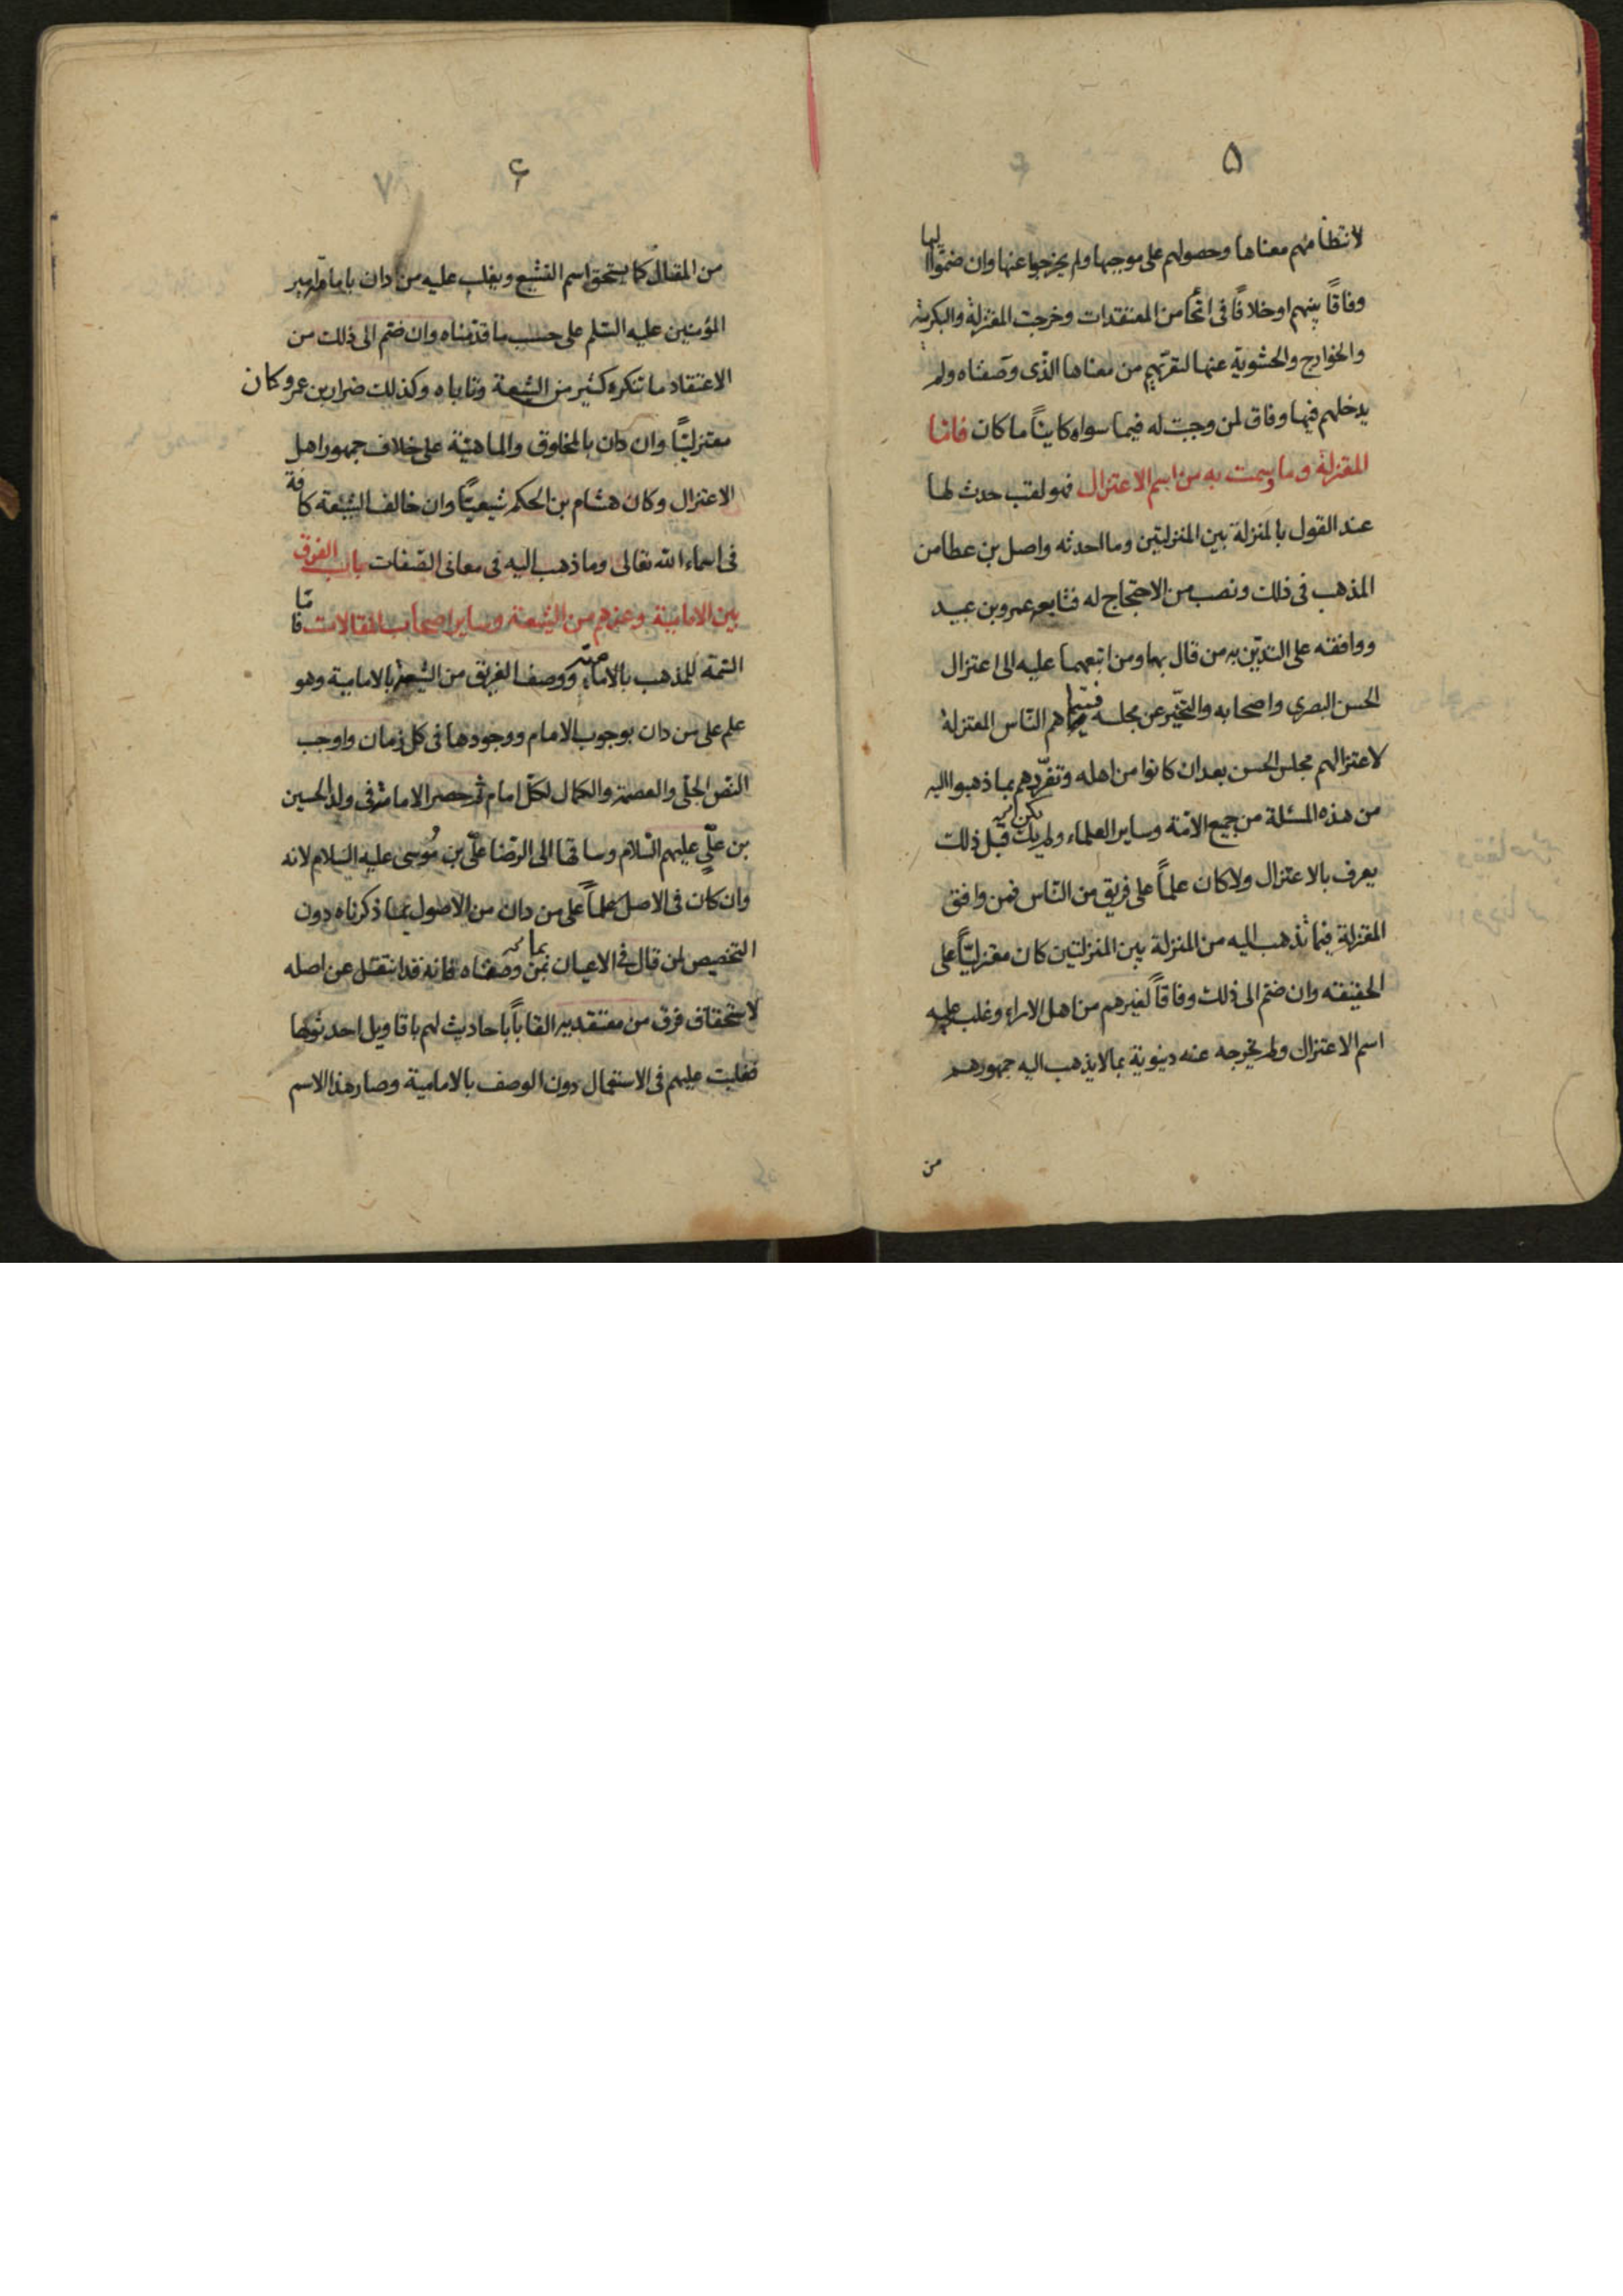 ۵
لانتظامهم معناها وحصولهم على موجبها ولم يخرجوا عنها وان ضمّوا اليها
وفاقاً بينهم او خلافاً فى انحاء من المعتقدات وخرجت المعتزلة والبكرية
والخوارج والحشوية عنها لتعرّيهم من معناها الذى وصفناه ولم
يدخلهم فيها وفاق لمن وجبت له فيما سواه كايناً ما كان فامّا
المعتزلة وما وسمت به من اسم الاعتزال فهو لقب حدث لها
عند القول بالمنزلة بين المنزلتين وما احدثه واصل بن عطا من
المذهب فى ذلك ونصب من الاحتجاج له فتابعه عمرو بن عبيد
ووافقه على التديّن به من قال بها ومن اتبعهما عليه الى اعتزال
الحسن البصرى واصحابه والتحيّز عن مجلسه فسمّاهم النّاس المعتزلة
لاعتزالهم مجلس الحسن بعد ان كانوا من اهله وتفرّدهم بما ذهبوا اليه
من هذه المسئلة من جميع الامّة وساير العلماء ولم يك قبل ذلك
يعرف بالاعتزال ولا كان علماً على فريق من النّاس فمن وافق
المعتزلة فيما تذهب اليه من المنزلة بين المنزلتين كان معتزليّاً على
الحقيقته وان ضمّ الى ذلك وفاقاً لغيرهم من اهل الاراء وغلب عليه
اسم الاعتزال ولم يخرجه عنه دينونة بما لا يذهب اليه جمهورهم
من
۶
۷
من المقال كما يستحق اسم التشيع ويغلب عليه من دان بامامة امير
المؤمنين عليه السّلم على حسب ما قدّمناه وان ضمّ الى ذلك من
الاعتقاد ما تنكره كثير من الشيعة وتاباه وكذلك ضرار بن عمرو كان
معتزليّاً وان دان بالمخلوق والماهيّة على خلاف جمهور اهل
الاعتزال وكان هشام بن الحكم شيعيّاً وان خالف الشيعة كافة
فى اسماء الله تعالى وما ذهب اليه فى معانى الصّفات باب الفرق
بين الامامية وغيرهم من الشيعة وساير اصحاب المقالات فامّا
السّمة للمذهب بالامامة ووصف الفريق من الشيعة بالامامية وهو
علم على من دان بوجوب الامام ووجودها فى كل زمان واوجب
النصّ الجلّى والعصمة والكمال لكلّ امام ثم حصر الامامة فى ولد الحسين
بن علّى عليهم السّلام وساقها الى الرّضا علّى بن مُوسى عليه السّلام لانه
وان كان فى الاصل علماً على من دان من الاصول بما ذكرناه دون
التخصيص لمن قال فى الاعيان بما وصفناه فانه قد انتقل عن اصله
لاستحقاق فرق من معتقديه القاباً باحاديث لهم باقاويل احدثوها
فغلبت عليهم فى الاستعمال دون الوصف بالامامية وصار هذا الاسم